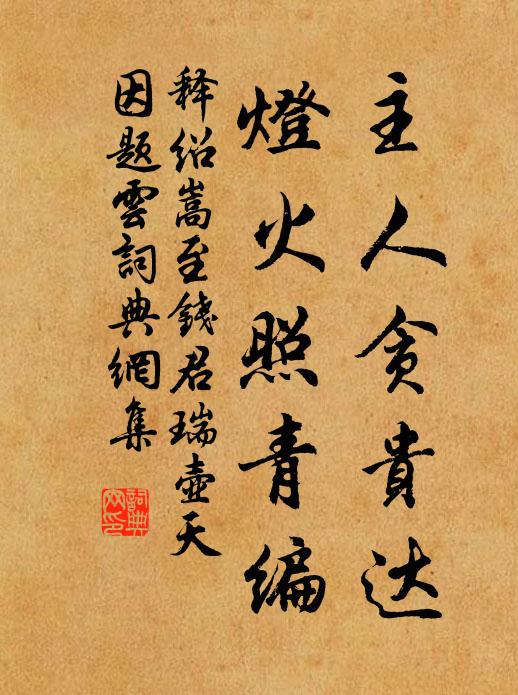 主人贪貴达
燈火照青编
释绍嵩至錢君瑞壶天
因题雲詞典網集
詞典
网印